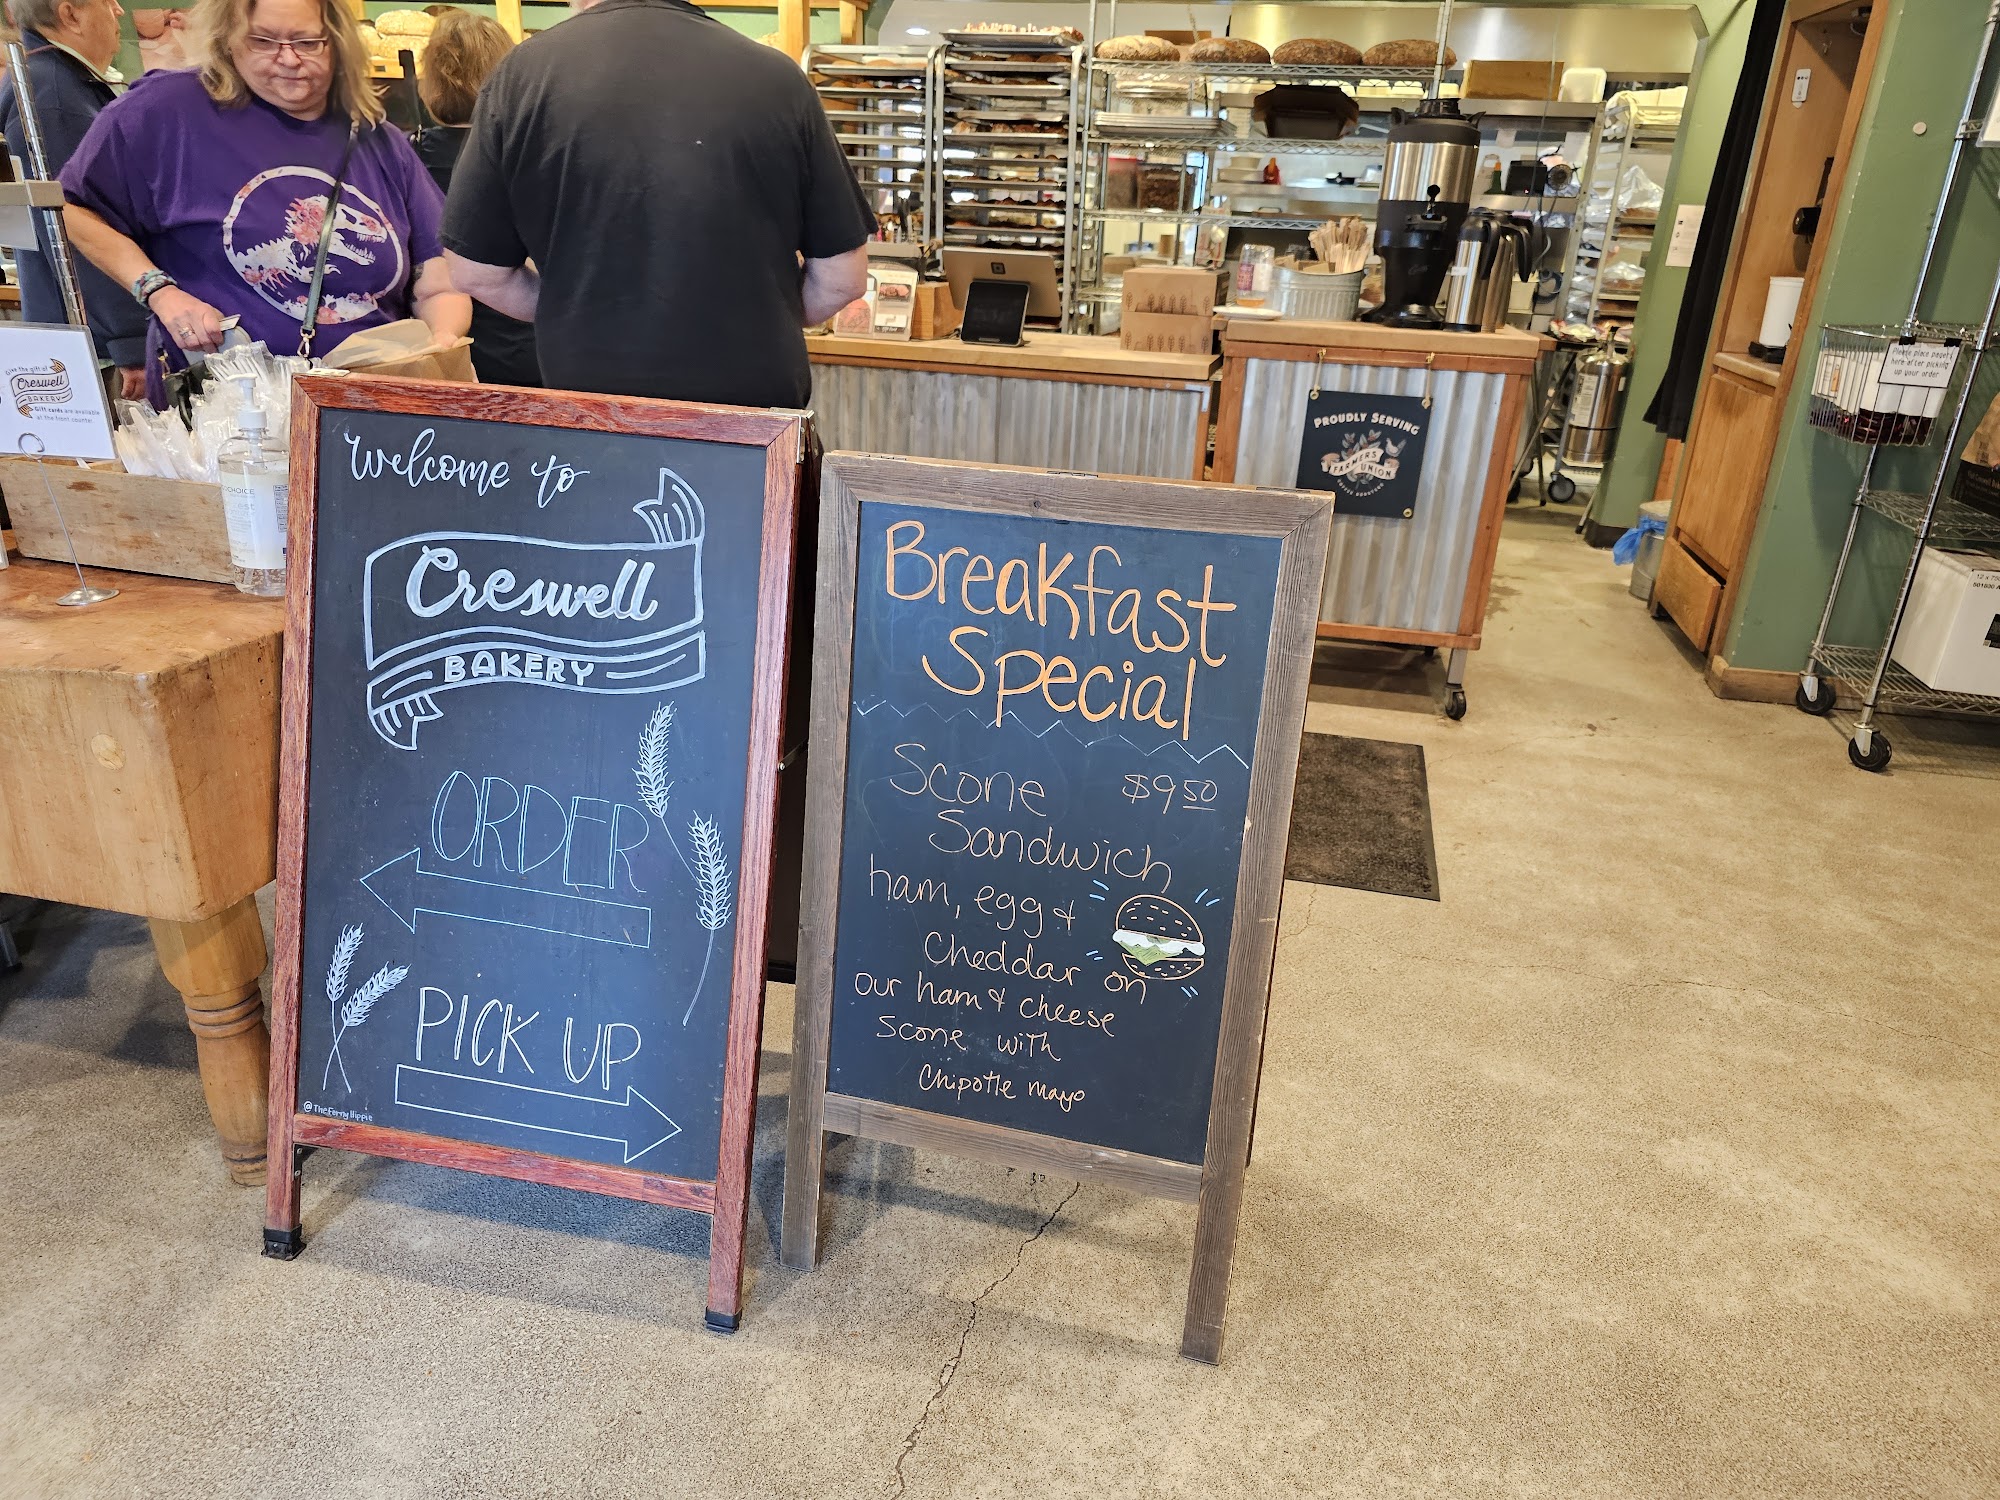 Welcome to
Creswell
BAKERY
ORDER
PICK UP
Breakfast
Special
Scone $9.50
Sandwich
ham, egg &
Cheddar on
our ham & cheese
Scone with
Chipotle mayo
Give the gift of
Creswell
BAKERY
Gift cards are available
at the front counter.
PROUDLY SERVING
FARMERS
UNION
COFFEE ROASTERS
Please place pagers
here after picking
up your order